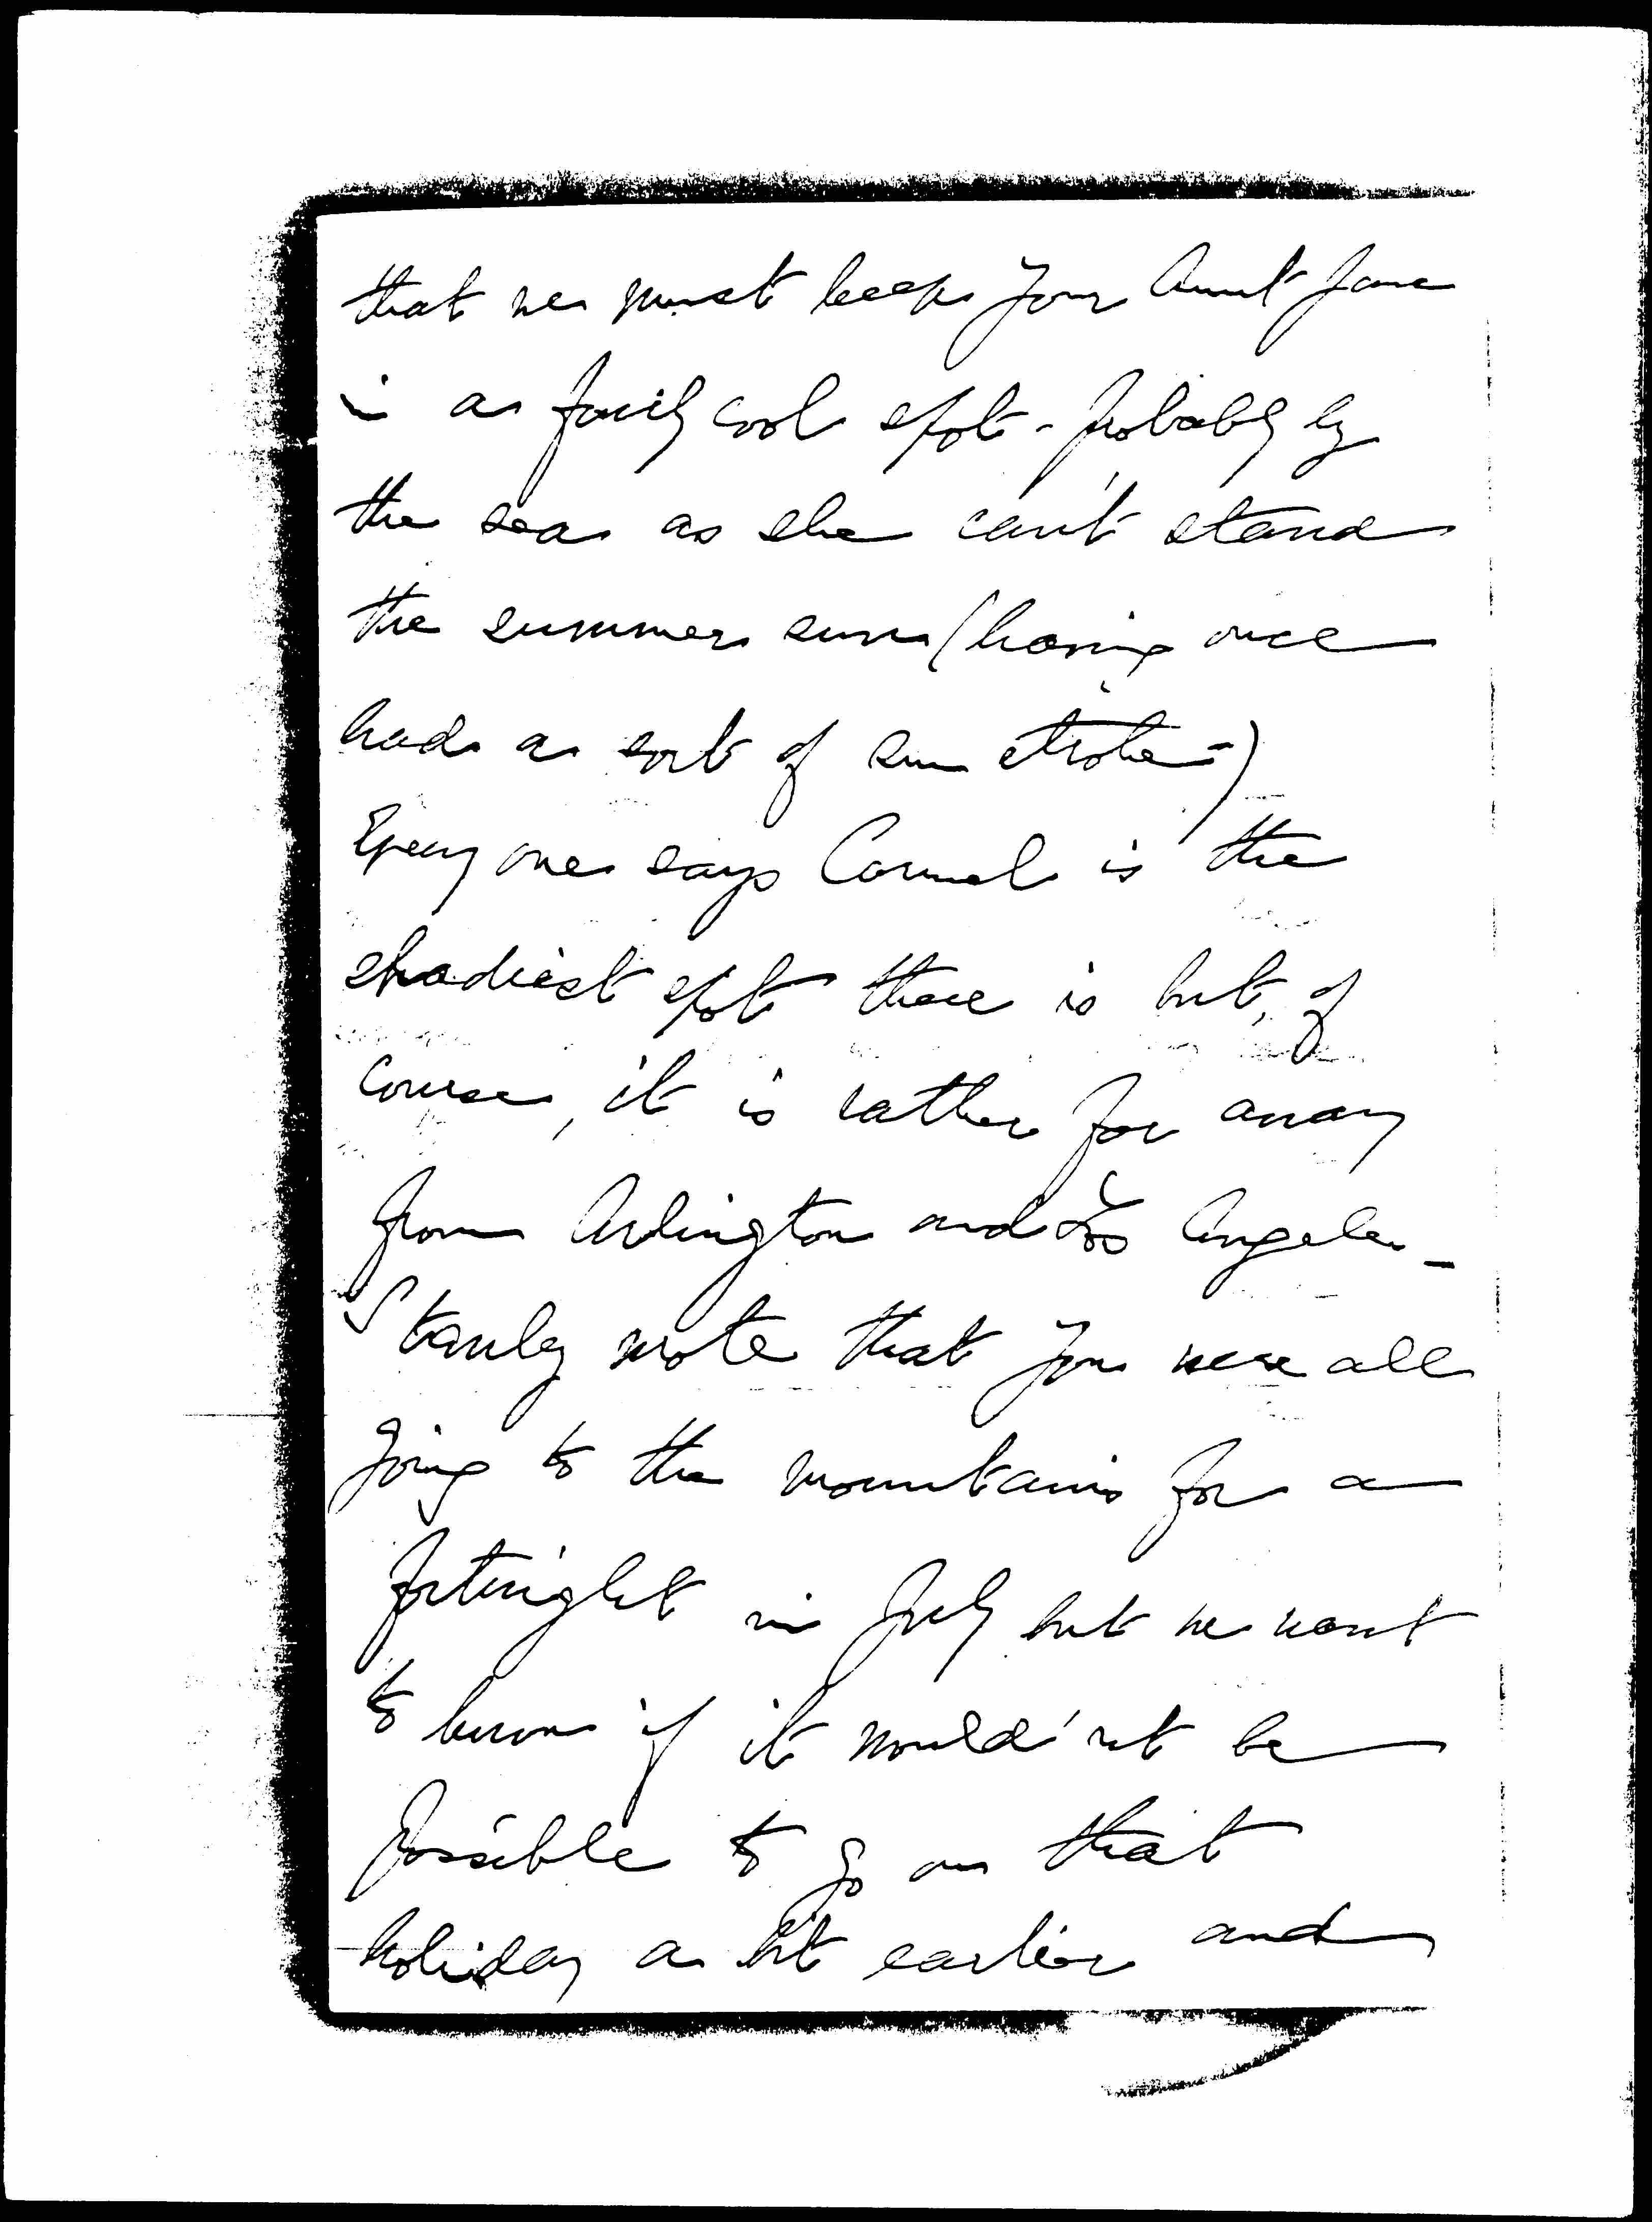 that we must keep your Aunt Jane
in a fairly cool spot - probably by
the sea as she can't stand
the summer sun (having once
had a sort of sun stroke -)
Every one says Carmel is the
shadiest spot there is but, of
course, it is rather far away
from Arlington and Los Angeles -
Stanley wrote that you were all
going to the mountains for a
fortnight in July but we want
to know if it would'nt be
possible to go on that
holiday a bit earlier and